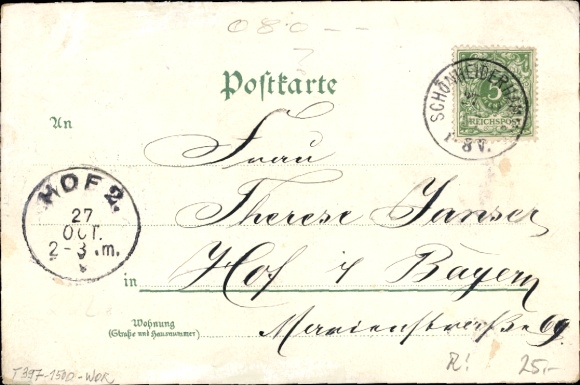 080--
Postkarte
SCHÖNHEIDERHAMMER
5
REICHSPOST
1-8V.
An
Frau
HOF 2.
27
OCT.
2-3 .m.
Therese Janser
in Hof i/ Bayern
Wohnung
(Straße und Hausnummer)
Marienstraße 69
T397-1500-WOK
R! 25.-